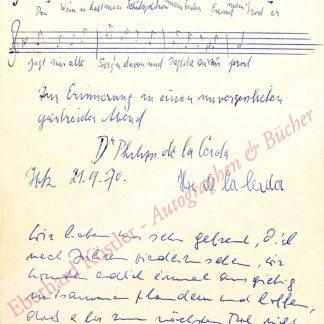 Du Wein
jagt mir alte Sorgen davon und
Zur Erinnerung an einen unvergesslichen
gastreichen Abend
Dr Philipp de la Cerda
21.9.70. de la Cerda
Wir haben uns sehr gefreut, Dich
nach Jahren wiederzusehen, wir
konnten endlich einmal ausgiebig
zusammen plaudern und hoffen,
dass es bis zum nächsten Mal nicht
Eberhard Köstler - Autographen & Bücher